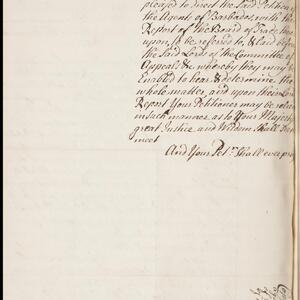 pleased to direct the said Petition
the Agents of Barbados with the
Report of the Board of Trade
upon, to be referred to, & laid before
the said Lords of the Committee
Appeals &c whereby they may
Enabled to hear & determine the
whole matter, and upon their
Report Your Petitioner may be
in such manner as to Your Majesty's
great Justice and Wisdom Shall
meet
And Your Pet.r Shall ever pray